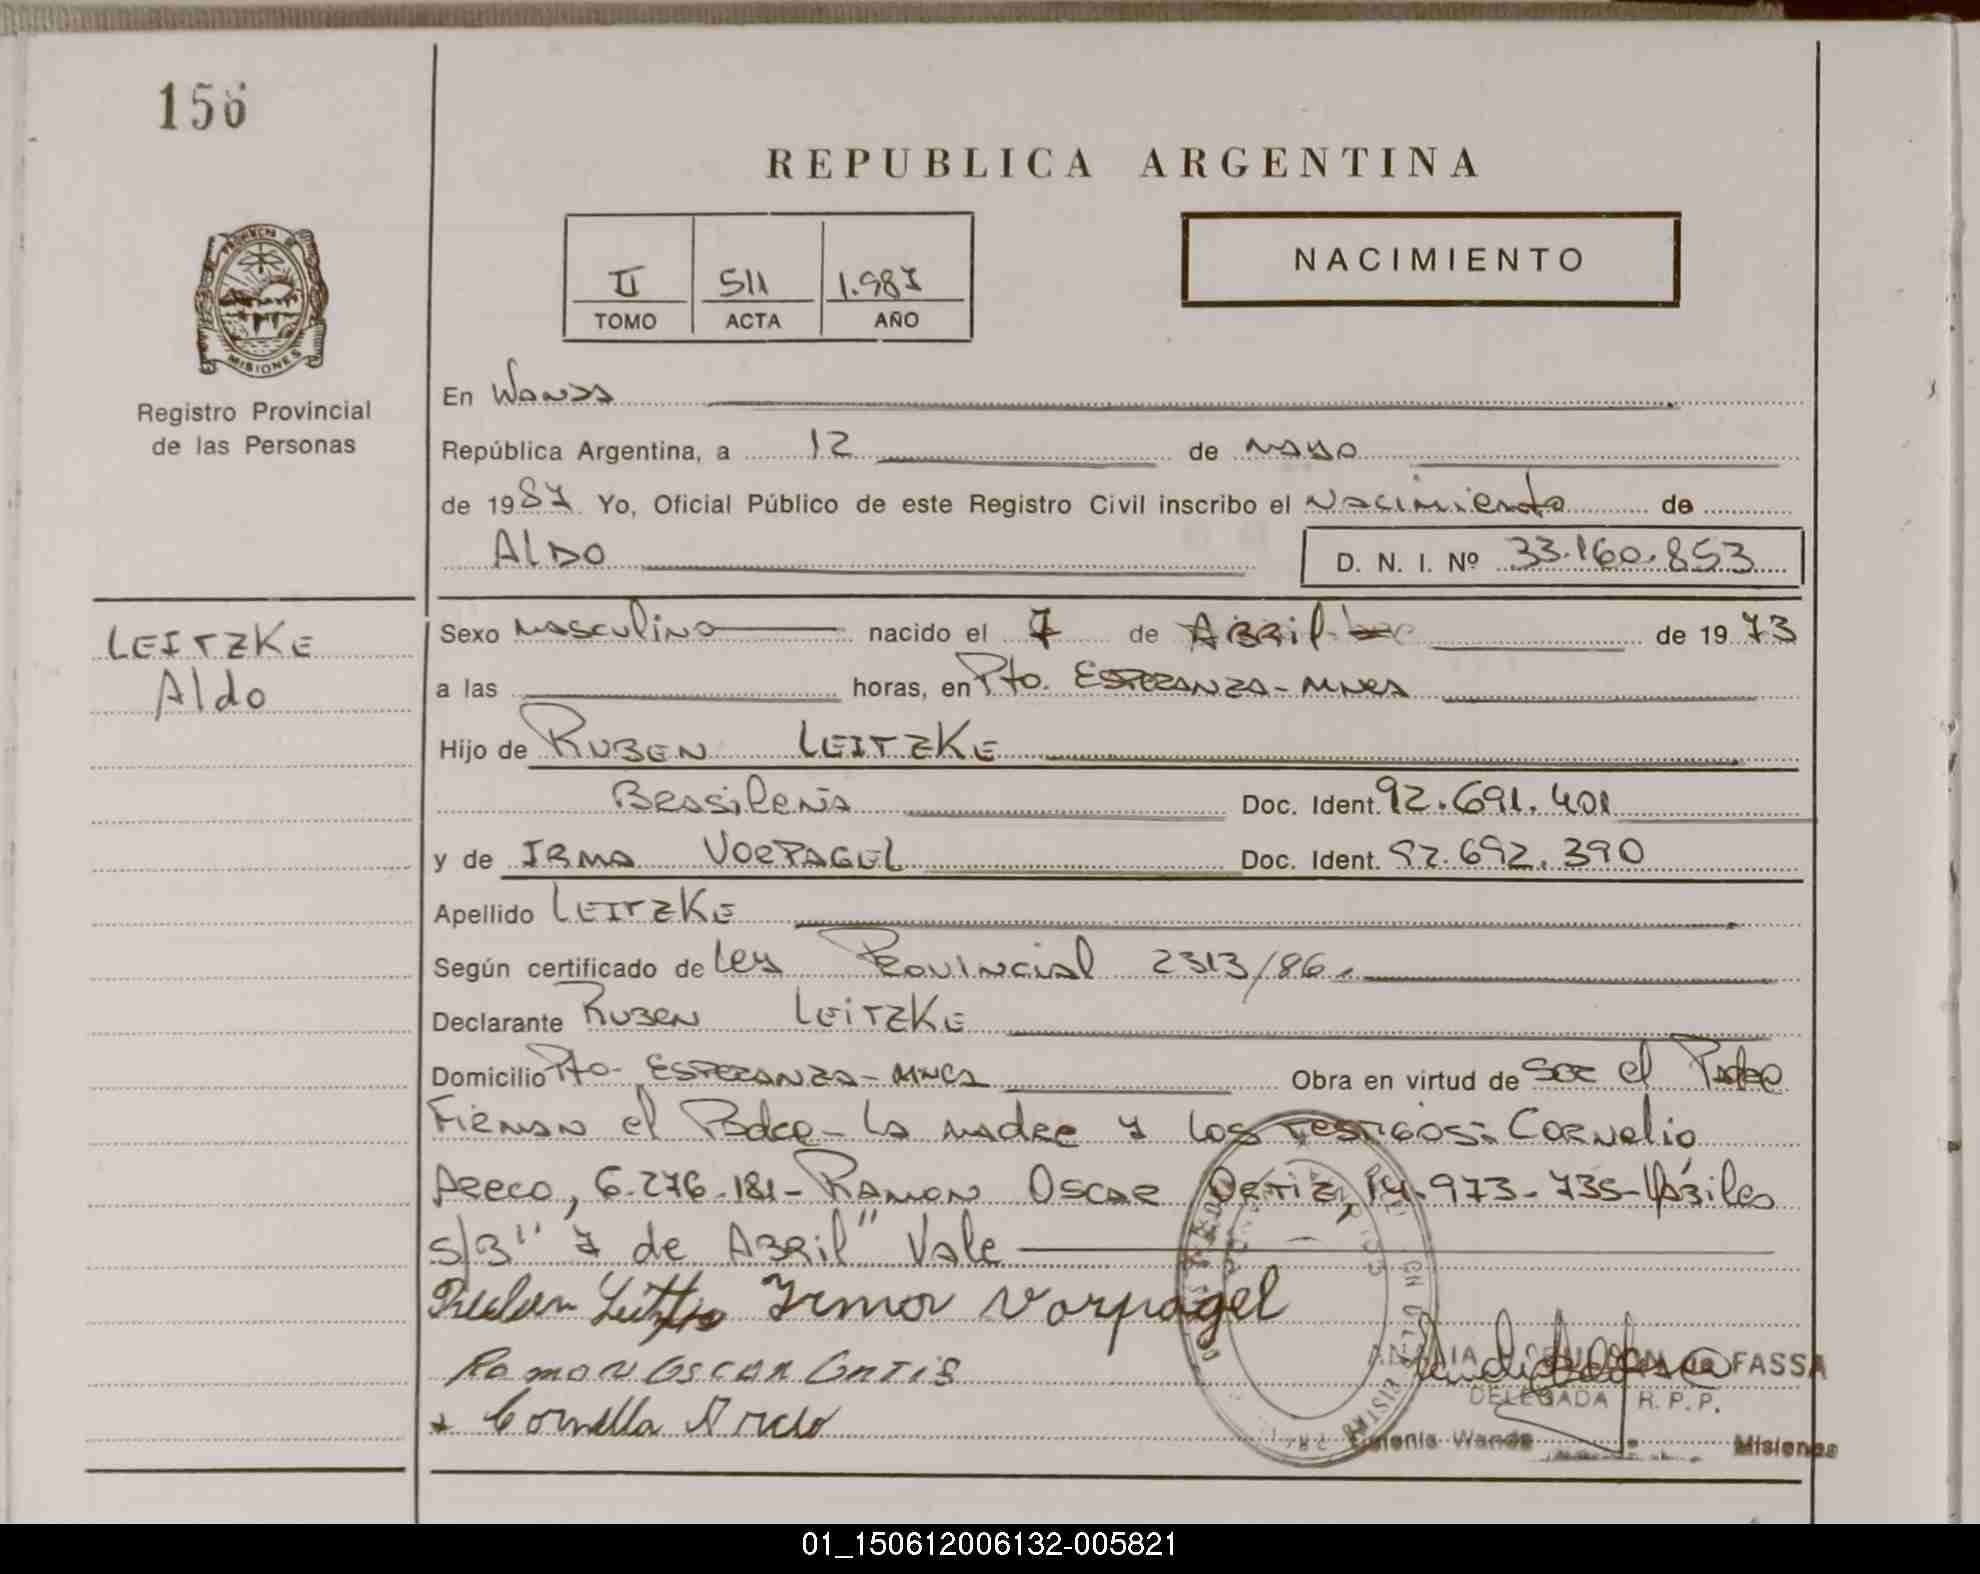 156
REPUBLICA ARGENTINA
II 511 1.987
TOMO ACTA AÑO
NACIMIENTO
PROVINCIA DE
MISIONES
Registro Provincial
de las Personas
En Wanda
República Argentina, a 12 de mayo
de 1987 Yo, Oficial Público de este Registro Civil inscribo el Nacimiento de
ALDO D. N. I. Nº 33.160.853
LEITZKE
Aldo
Sexo masculino nacido el 7 de Abril de 1973
a las horas, en Pto. ESPERANZA - MNES
Hijo de RUBEN LEITZKE
Brasileña Doc. Ident. 92.691.401
y de IRMA VORPAGEL Doc. Ident. 92.692.390
Apellido LEITZKE
Según certificado de Ley Provincial 2313/86.
Declarante RUBEN LEITZKE
Domicilio Pto- ESPERANZA - MNES Obra en virtud de Ser el Padre
Firman el Padre - La madre y Los testigos: Cornelio
Areco, 6.276.181 - RAMON OSCAR ORTIZ, 14.973.735 - Hábiles
s/B " 7 de Abril " Vale
Ruben Leitzke Irma Vorpagel
Ramon Oscar Ortis
DE FASSA
DELEGADA R. P. P.
Colonia Wanda Misiones
01_150612006132-005821